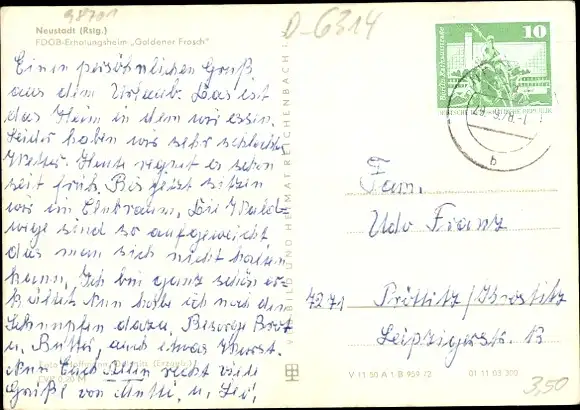 98701
D-6314
Neustadt (Rstg.)
FDGB-Erholungsheim „Goldener Frosch"
Einen persöhnlichen Gruß
aus dem Urlaub. Das ist
das Heim in dem wir essen.
Leider haben wir sehr schlechtes
Wetter. Heute regnet es schon
seit früh. Bis jetzt sitzen
wir im Clubraum. Die Wald-
wege sind so aufgeweicht
das man sich nicht halten
kann. Ich bin ganz schön er-
kältet. Nun habe ich noch den
Schnupfen dazu. Besorge Brot
u. Butter, auch etwas Wurst.
Nun Euch Allen recht viele
Grüße von Mutti, u.
VERLAG BILD UND HEIMAT REICHENBACH I.
10
Berlin, Rathausstraße
DEUTSCHE DEMOKRATISCHE REPUBLIK
b
Fam.
Udo Franz
7271 Pröttitz/Krostitz
Leipzigerstr. 13
V 11 50 A 1 B 959/2 01 11 03 300
3,50